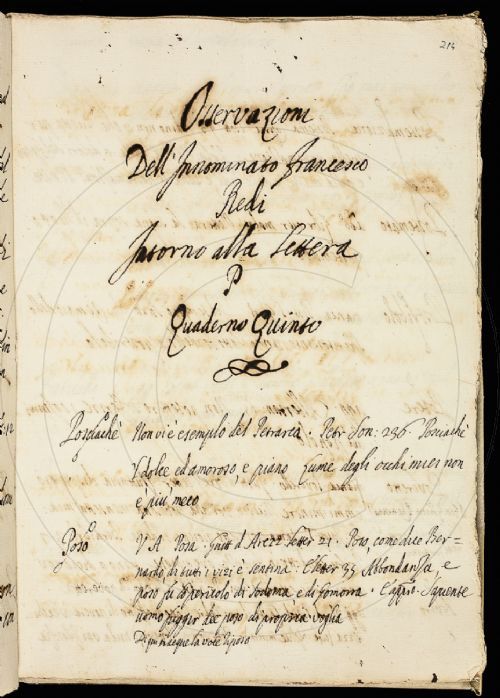 214
Osservazioni
Dell'Innominato Francesco
Redi
Intorno alla Lettera
P
Quaderno Quinto
Non vi è esempio del Petrarca. Petr. Son: 236 Posciachè
'l dolce ed amoroso, e piano lume degli occhi miei non
è più meco
Poso
V A Posa. Guitt d'Arezz Letter 21. Poso, come dice Ber=
nardo di tutti i vizi è sentina. E letter 33 Abbondanza, e
poso fu pericolo di Sodoma e di Gomorra. E
uomo legger dee poso di propria voglia